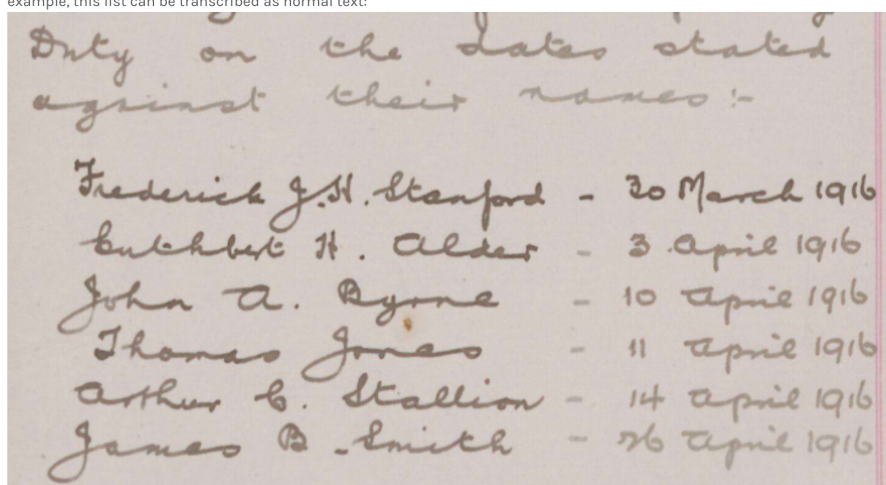 example, this list can be transcribed as normal text:
Duty on the dates stated
against their names:-
Frederick J.H. Stanford - 30 March 1916
Cuthbert H. Alder - 3 April 1916
John A. Byrne - 10 April 1916
Thomas Jones - 11 April 1916
Arthur C. Stallion - 14 April 1916
James B. Smith - 26 April 1916